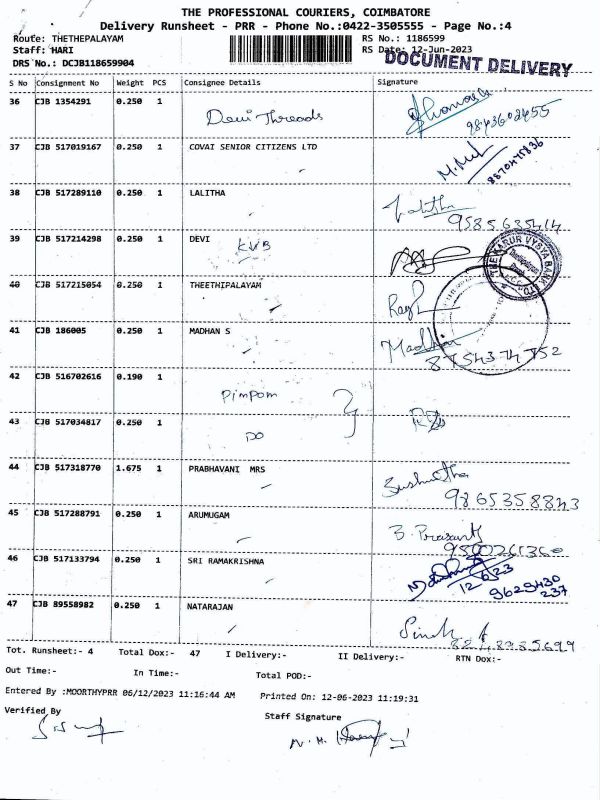 THE PROFESSIONAL COURIERS, COIMBATORE
Delivery Runsheet - PRR - Phone No.:0422-3505555 - Page No.:4
Route: THETHEPALAYAM RS No.: 1186599
Staff: HARI RS Date: 12-Jun-2023
DRS No.: DCJB118659904 DOCUMENT DELIVERY
S No Consignment No Weight PCS Consignee Details Signature
36 CJB 1354291 0.250 1 Devi Threads
37 CJB 517019167 0.250 1 COVAI SENIOR CITIZENS LTD
8870475836
38 CJB 517289110 0.250 1 LALITHA Lalitha
9585635414
39 CJB 517214298 0.250 1 DEVI
KVB
THE KARUR VYSYA BANK LTD
40 CJB 517215054 0.250 1 THEETHIPALAYAM
41 CJB 186005 0.250 1 MADHAN S Madhan
8754374752
42 CJB 516702616 0.190 1 Pimpom
43 CJB 517034817 0.250 1 DO
44 CJB 517318770 1.675 1 PRABHAVANI MRS Sushmitha
9865358843
45 CJB 517288791 0.250 1 ARUMUGAM B. Prasanth
46 CJB 517133794 0.250 1 SRI RAMAKRISHNA
12/6/23
9629430
237
47 CJB 89558982 0.250 1 NATARAJAN
Tot. Runsheet:- 4 Total Dox:- 47 I Delivery:- II Delivery:- RTN Dox:-
Out Time:- In Time:- Total POD:-
Entered By :MOORTHYPRR 06/12/2023 11:16:44 AM Printed On: 12-06-2023 11:19:31
Verified By Staff Signature